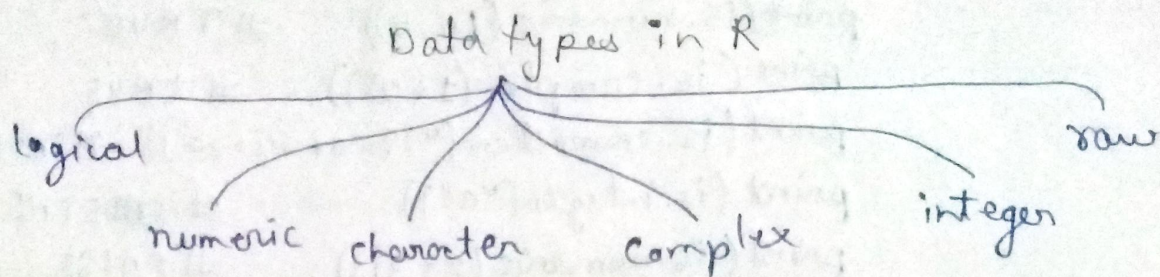 Data types in R
logical
raw
numeric
character
complex
integer